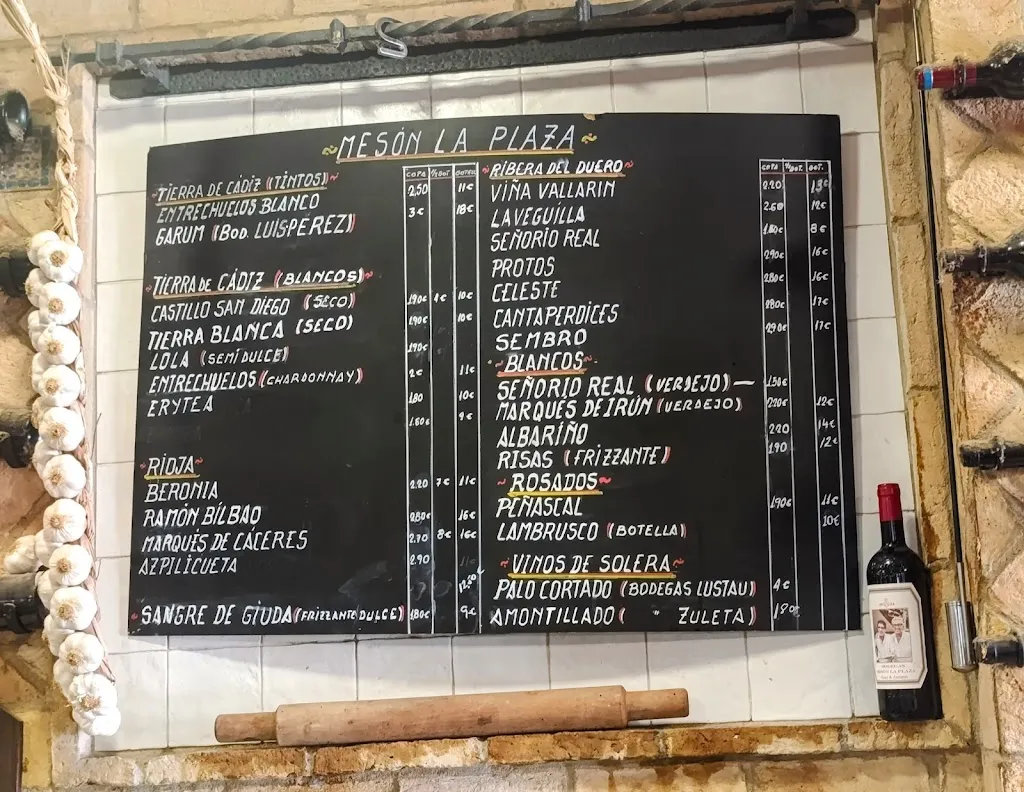 MESÓN LA PLAZA
COPA ½BOT BOTELL
~TIERRA DE CÁDIZ (TINTOS)~
ENTRECHUELOS BLANCO 2,50 11€
GARUM (BOD. LUISPÉREZ) 3€ 18€
~TIERRA DE CÁDIZ (BLANCOS)~
CASTILLO SAN DIEGO (SECO) 1,90€ 4€ 10€
TIERRA BLANCA (SECO) 1,90€ 10€
LOLA (SEMIDULCE) 1,90€
ENTRECHUELOS (CHARDONNAY) 2€ 11€
ERYTEA 1,80 10€
1.60€ 9€
~RIOJA~
BERONIA 2.20 7€ 11€
RAMÓN BILBAO 2,80€ 16€
MARQUÉS DE CÁCERES 2.70 8€ 16€
AZPILICUETA 2.90
12,50€
SANGRE DE GIUDA (FRIZZANTE DULCE) 1,80€ 9€
~RIBERA DEL DUERO~
COPA ½BOT BOT.
VIÑA VALLARIN 2.20 13€
LAVEGUILLA 2.60 12€
SEÑORIO REAL 1,80€ 8€
PROTOS 2,90€ 16€
CELESTE 2,80€ 16€
CANTAPERDICES 2,80€ 17€
SEMBRO 2,90€ 17€
~BLANCOS~
SEÑORIO REAL (VERDEJO) — 1,50€
MARQUÉS DE IRÚN (VERDEJO) 2,20€ 12€
ALBARIÑO 2.20 14€
RISAS (FRIZZANTE) 1.90 12€
~ROSADOS~
PEÑASCAL 1,90€ 11€
LAMBRUSCO (BOTELLA) 10€
~VINOS DE SOLERA~
PALO CORTADO (BODEGAS LUSTAU) 4€
AMONTILLADO ( " ZULETA) 1,80